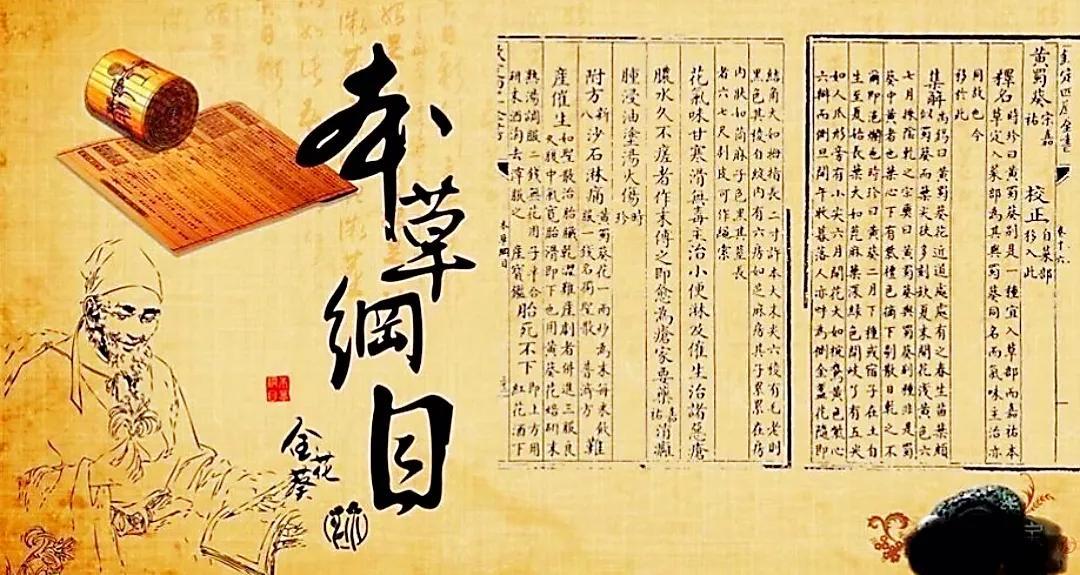 本草綱目
金花葵
黃蜀葵 宋嘉祐 校正 自菜部移入此
釋名 時珍曰黃蜀葵別是一種宜入草部而嘉祐本
草定入菜部為其與蜀葵同名而氣味主治亦
同故也今
移於此
集解 禹錫曰黃蜀葵花近道處處有之春生苗葉頗
似蜀葵而葉尖狹多刻缺夏末開花淺黃色六
七月採陰乾之宗奭曰黃蜀葵與蜀葵別種非是蜀
葵中黃者也葉心下有紫檀色摘下剔散日乾之不
爾即浥爛也時珍曰黃葵二月下種或宿子在土自
生至夏始長葉大如蓖麻葉深綠色開岐丫有五尖
如人爪形旁有小尖六月開花大如椀鵞黃色紫心
六瓣而側旦開午收暮落人亦呼為側金盞花隨即
結角大如拇指長二寸許本大末尖六稜有毛老則
黑色其稜自綻內有六房如芝麻房其子纍纍在房
內狀如茼麻子色黑其莖長
者六七尺剝皮可作繩索
花氣味甘寒滑無毒主治小便淋及催生治諸惡瘡
膿水久不瘥者作末傅之即愈為瘡家要藥 嘉祐 消癰
腫浸油塗湯火傷 時珍
附方 新八 沙石淋痛 黃蜀葵花一兩炒為末每米飲
服一錢名獨聖散 普濟方 難
產催生 如聖散治胎臟乾澀難產劇者併進三服良
久腹中氣寬胎滑即下也用黃葵花焙研末
熟湯調服二錢無花用子半合
研末酒淘去滓服之 產寶鑑 胎死不下 即上方用
紅花酒下